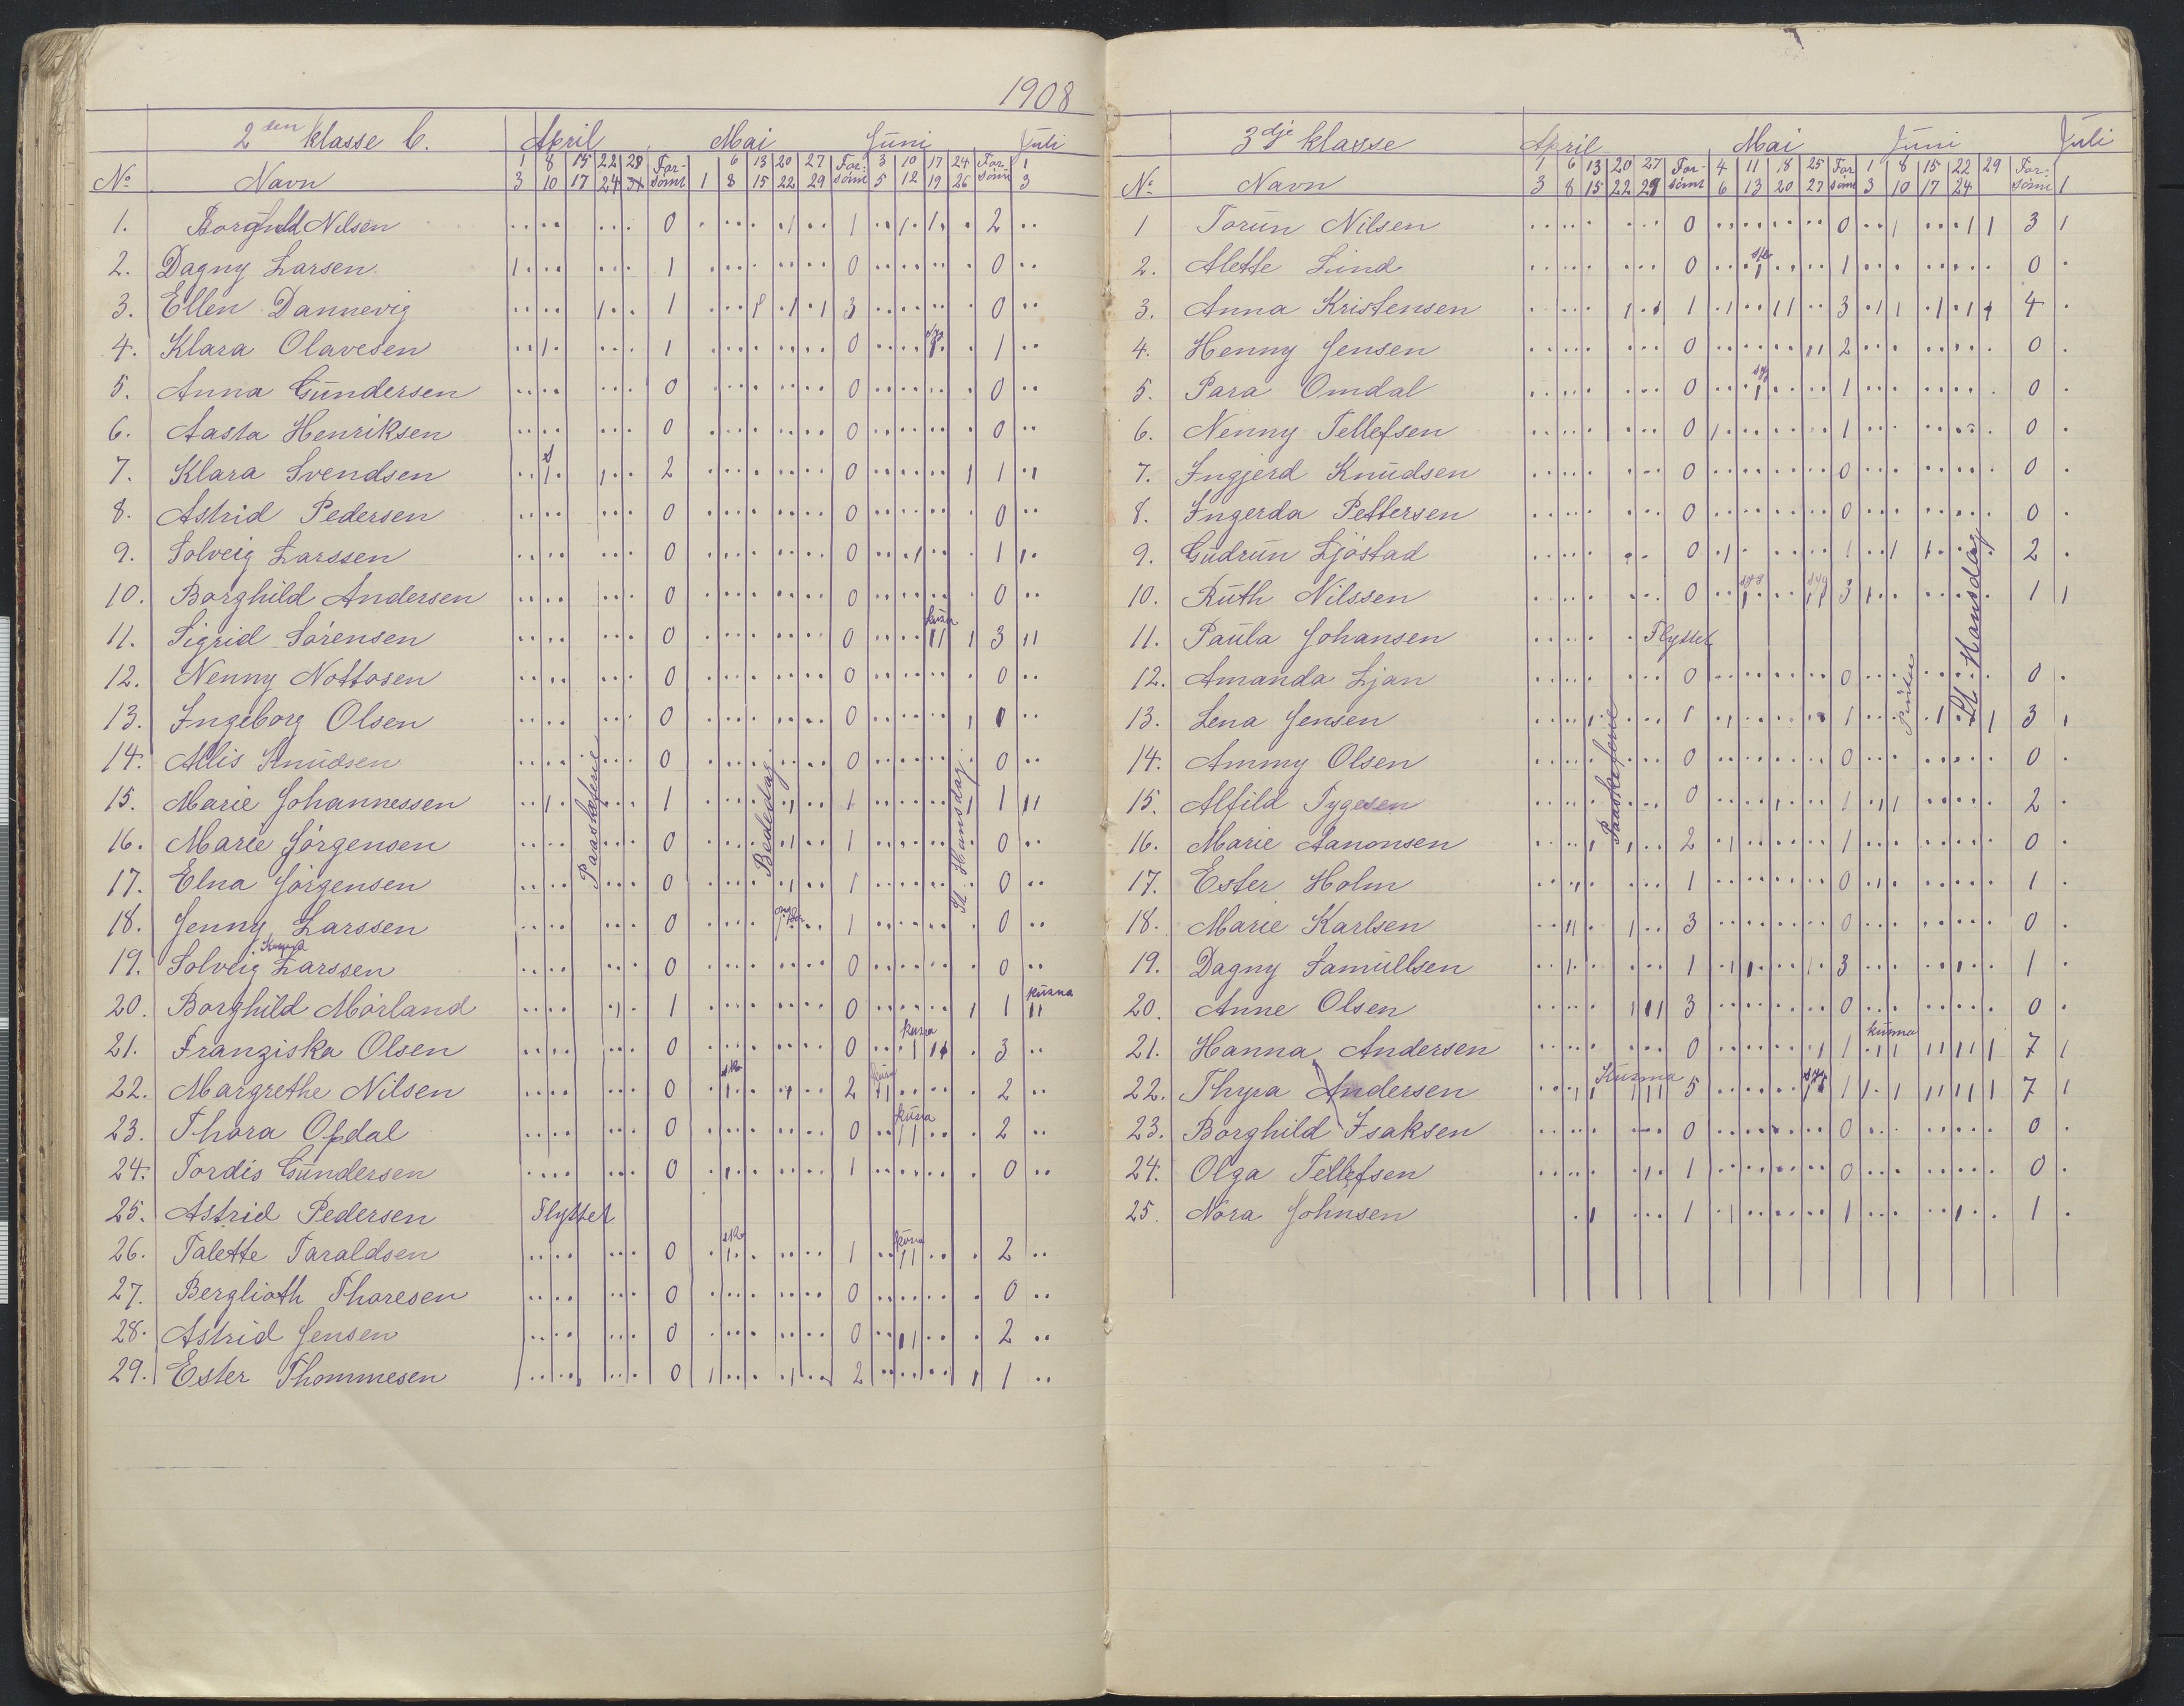 1908
2den klasse C. April Mai Juni Juli
No Navn 1 3 8 10 15 17 22 24 29 For-sömt 1 6 8 13 15 20 22 27 29 For-sömt 3 5 10 12 17 19 24 26 For-sömt 1 3
1. Borghild Nilsen 0 1 2
2. Dagny Larsen 1 0 0
3. Ellen Dannevig 1 3 0
4. Klara Olavesen 1 0 syg 1
5. Anna Gundersen 0 0 0
6. Aasta Henriksen 0 0 0
7. Klara Svendsen 2 0 1
8. Astrid Pedersen 0 0 0
9. Solveig Larssen 0 0 1
10. Borghild Andersen 0 0 0
11. Sigrid Sörensen 0 0 3
12. Nenny Nottosen 0 0 0
13. Ingeborg Olsen 0 0 1
14. Allis Knudsen 0 0 0
15. Marie Johannessen 1 1 1
16. Marie Jörgensen 0 1 0
17. Elna Jörgensen 0 1 0
18. Jenny Larssen 0 1 0
19. Solveig Larssen 0 0 0
20. Borghild Mörland 1 0 1 kusma
21. Franziska Olsen 0 0 kusma 3
22. Margrethe Nilsen 0 sko 2 2
23. Thora Opdal 0 0 kusma 2
24. Tordis Gundersen 0 1 0
25. Astrid Pedersen Flyttet
26. Talette Taraldsen 0 sko 1 kusma 2
27. Berglioth Thoresen 0 0 0
28. Astrid Jensen 0 0 2
29. Ester Thommesen 0 2 1
Paaskeferie
Bededag
St. Hansdag
3dje klasse April Mai Juni Juli
No Navn 1 3 6 8 13 15 20 22 27 29 For-sömt 4 6 11 13 18 20 25 27 For-sömt 1 3 8 10 15 17 22 24 29 For-sömt 1
1 Torun Nilsen 0 0 3
2. Alette Lund 0 1 0
3. Anna Kristensen 1 3 4
4. Henny Jensen 0 2 0
5. Para Omdal 0 syg 1 0
6. Nenny Tellefsen 0 1 0
7. Ingjerd Knudsen 0 0 0
8. Ingerda Pettersen 0 0 0
9. Gudrun Ljöstad 0 1 2
10. Ruth Nilssen 0 syg syg 3 1
11. Paula Johansen Flyttet
12. Amanda Ljan 0 0 0
13. Lena Jensen 1 1 3
14. Ammy Olsen 0 0 0
15. Alfild Tygesen 0 1 2
16. Marie Aanonsen 2 1 0
17. Ester Holm 1 0 1
18. Marie Karlsen 3 0 0
19. Dagny Samullsen 1 3 1
20. Anne Olsen 3 0 0
21. Hanna Andersen 0 1 kusma 7
22. Thyra Andersen Kusma 5 syg 1 7
23. Borghild Isaksen 0 0 0
24. Olga Tellefsen 1 0 0
25. Nora Johnsen 1 1 1
Paaskeferie
Pintse
St. Hansdag